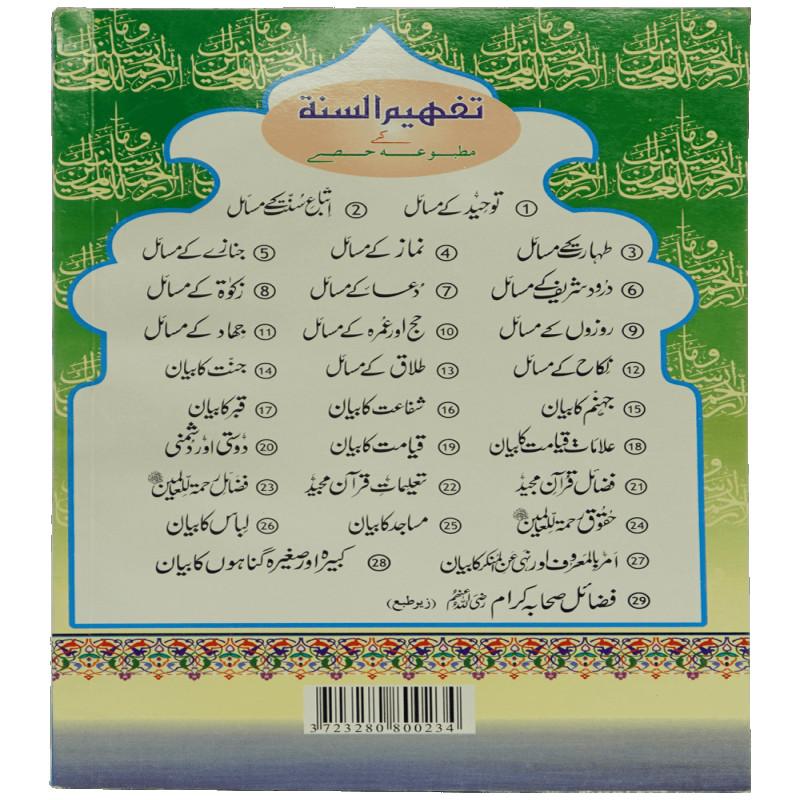 تفہیم السنۃ
کے
مطبوعہ حصے
① توحید کے مسائل ② اتباعِ سُنّت کے مسائل
③ طہارت کے مسائل ④ نماز کے مسائل ⑤ جنازے کے مسائل
⑥ درود شریف کے مسائل ⑦ دُعا کے مسائل ⑧ زکوٰۃ کے مسائل
⑨ روزوں کے مسائل ⑩ حج اور عُمرہ کے مسائل ⑪ جہاد کے مسائل
⑫ نکاح کے مسائل ⑬ طلاق کے مسائل ⑭ جنّت کا بیان
⑮ جہنّم کا بیان ⑯ شفاعت کا بیان ⑰ قبر کا بیان
⑱ علاماتِ قیامت کا بیان ⑲ قیامت کا بیان ⑳ دوستی اور دُشمنی
㉑ فضائلِ قرآن مجید ㉒ تعلیماتِ قرآن مجید ㉓ فضائل رحمۃ للعالمین ﷺ
㉔ حقوق رحمۃ للعالمین ﷺ ㉕ مساجد کا بیان ㉖ لباس کا بیان
㉗ امر بالمعروف اور نہی عن المنکر کا بیان ㉘ کبیرہ اور صغیرہ گناہوں کا بیان
㉙ فضائل صحابہ کرام رضی اللہ عنھم (زیر طبع)
3723280800234
وما ارسلنك الا رحمة للعالمين